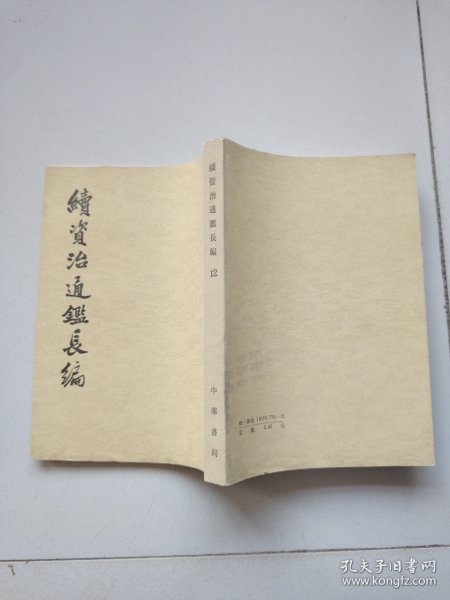 續資治通鑑長編
續資治通鑑長編 12
中華書局
統一書號：11018·776—12
定價： 2.45 元
孔夫子旧书网
www.kongfz.com